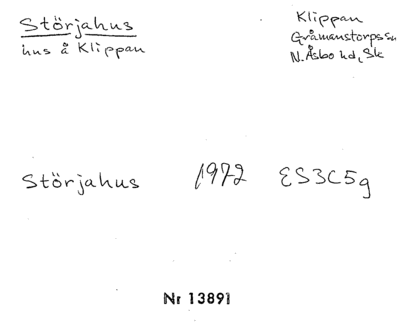 Störjahus
hus å Klippan
Klippan
Gråmanstorps sn
N. Åsbo hd, Sk
Störjahus 1972 ES3C5g
Nr 13891